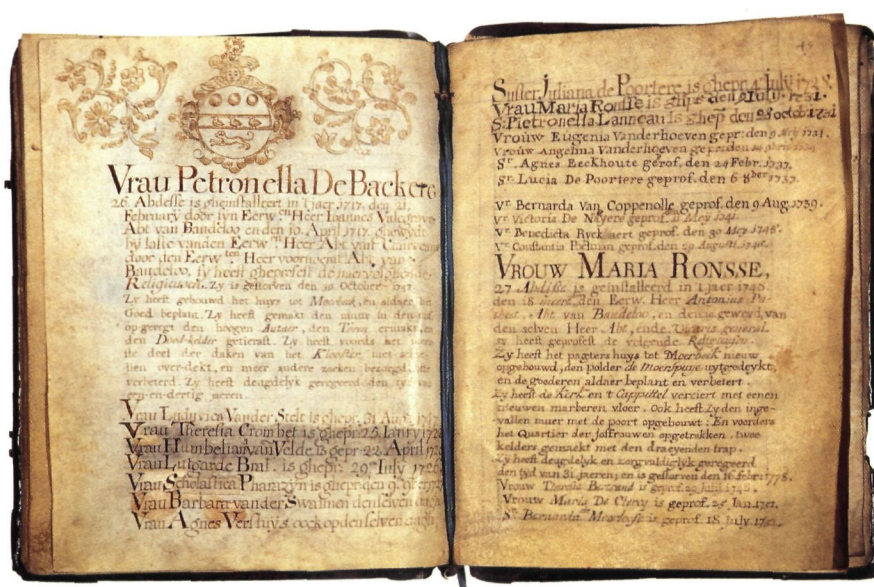 Vrau Petronella De Backer
26. Abdesse is gheinstalleert in 't jaer 1717. den 21.
February door syn Eerw. Heer Ioannes
Abt van Baudeloo en den 10. April 1717. ghewydt
by laste vanden Eerw. Heer Abt van
door den Eerw. Heer voornoemt Abt van
Baudeloo, sy heeft gheprofest de naervolghende
Religieusen. Zy is gestorven den 10 October
Zy heeft gebouwd het huys tot Moerbeek, en aldaer het
Goed beplant. Zy heeft gemaekt den muer in den
op geregt den hoogen Autaer, den Troon
den Dood-kelder gecierst. Zy heeft voords het
te deel der daken van het Klooster met
lien over-dekt, en meer andere zaeken bezorgd
verbeterd. Zy heeft deugdelyk geregeerd den tyd van
en-dertig jaeren.
Vrau Ludovica Vander Stelt is ghepr. 31 Aug.
Vrau Theresia Crombet is ghepr. 25 Ianry
Vrau Humbelina van Velde is gepr. 22 April
Vrau Lutgarde Bral is ghepr. 29 July 1726
Vrau Scholastica Pharazyn is ghepr den 9
Vrau Barbara vander Swalmen den selven
Vrau Agnes Versluys oock op den selven
Suster Juliana de Poortere is ghepr. 4 July
Vrau Maria Ronsse is ghepr den July 1731.
S. Pietronella Lanneau is ghep den 28 octob 1731
Vrouw Eugenia Vanderhoeven gepr. den 9 1731.
Vrouw Angelina Vanderhoeven gepr. den
Sr. Agnes Eeckhoute geprof. den 24 Febr. 1737.
Sr. Lucia De Poortere geprof. den 6 8ber 1737.
Vr. Bernarda Van Coppenolle geprof. den 9 Aug. 1739.
Vr Victoria De Neyere geprof. Mey 1741.
Vr Benedicta Ryckaert geprof. den 30 May 1745.
Vr Constantia Poelman geprof. den 29 Augusti
VROUW MARIA RONSSE,
27 Abdisse is geinstalleerd in 't jaer
den 18 den Eerw. Heer Antonius
Abt van Baudeloo, en den gewyd van
den selven Heer Abt, ende Vicaris general.
Zy heeft geprofest de volgende Religieusen.
Zy heeft het pagters huys tot Moerbeek nieuw
opgebouwd, den polder de Moerspuye uytgedykt,
en de goederen aldaer beplant en verbetert.
Zy heeft de Kerk en 't Cappittel verciert met eenen
nieuwen marberen vloer. Ook heeft Zy den inge-
vallen muer met de poort opgebouwt: En voorders
het Quartier der Joffrouwen opgetrokken, twee
kelders gemaekt met den draeyenden trap.
Zy heeft deugdelyk en zorgvuldiglyk geregeerd
den tyd van 31 jaeren; en is gestorven den 16 febri 1778.
Vrouw Theresia is geprof. 29 Juny
Vrouw Maria De Clercq is geprof. 25 Jan. 1751.
Sr Bernarda is geprof. 18 July 1751.